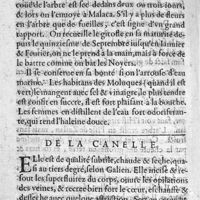 coudé l'arbre est sec dedans deux ou trois iours,
& lors on l'enuoye à Malaca. S'il y a plus de fleurs
en l'arbre que de fueilles, c'est signe d'vn grand
rapport. On recueille le girofle en sa maturité de-
puis le quinziesme de Septembre iusqu'à la my
de Feurier, on ne le prend à la main, mais à force de
le battre comme on bat les Noyers.
Il se conserue en sa bonté si on l'arrouse d'eau
marine. Les habitans des Moluques (quand il est
vert) le mangent auec sel & vinaigre, le plus tendre
est confit en succre, il est fort plaisant à la bouche.
Les femmes en distillent de l'eau fort odorifera-
te, qui rend l'haleine douce.
DE LA CANELLE.
Elle est de qualité subtile, chaude & seche, qua-
si au tiers degré, selon Galien. Elle nettoye & re-
sout les superfluitez du corps, ouure les opilations
des veines, & recree bien fort le cœur, eschauffe &
desseche auec quelque astriction.